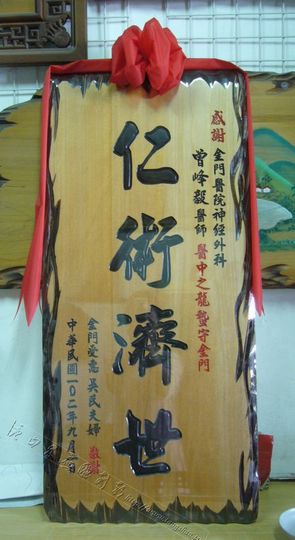 感謝
金門醫院神經外科
曾峰毅醫師 醫中之龍蟄守金門
仁術濟世
金門受惠吳民夫婦 敬謝
中華民國一0二年九月一日